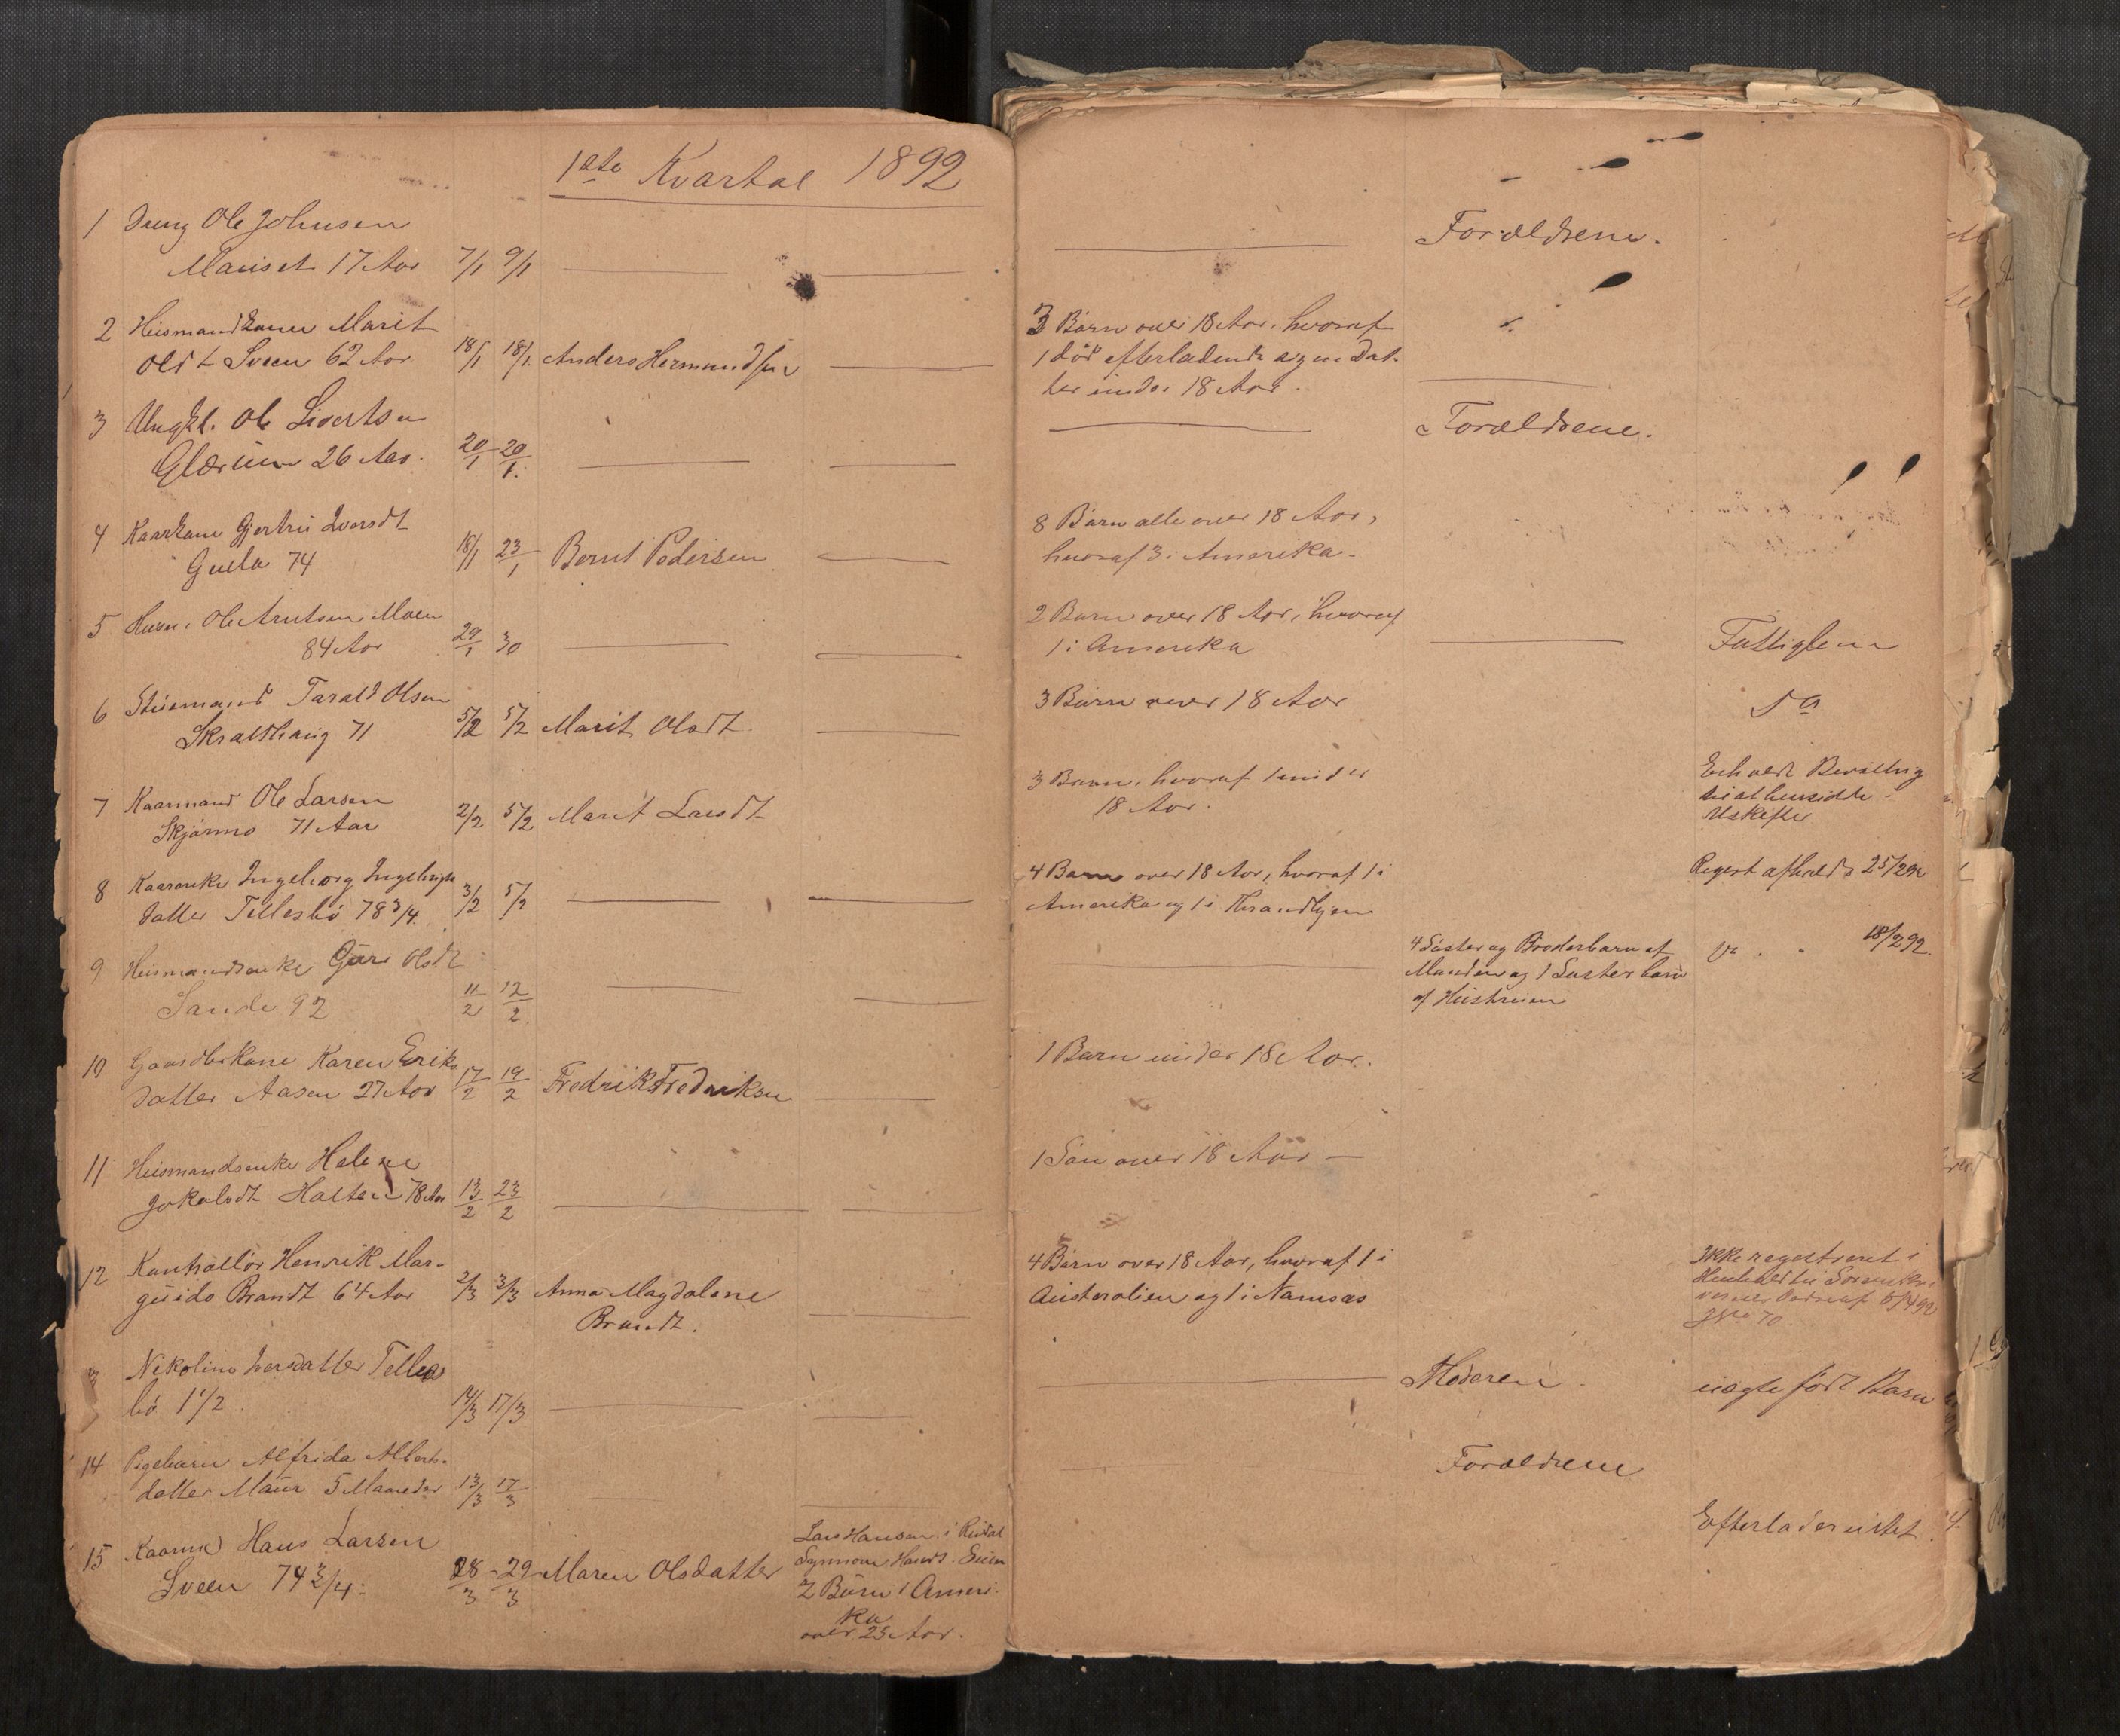 1ste Kvartal 1892
1 Dreng Ole Johnsen
Mariset 17 Aar 7/1 9/1
Forældrene.
2 Huusmandkone Marit
Olsdt Sveen 62 Aar 18/1 18/1. Anders Hermundsen
3 Børn over 18 Aar, hvoraf
1 død efterladende sig en Dat-
ter under 18 Aar.
3 Ungkl. Ole Sivertsen
26 Aar. 20/1 20/1.
Forældrene.
4 Kaarkone Gjertru Iversdt
Gulla 74 18/1 23/1 Bernt Pedersen
8 Børn alle over 18 Aar,
hvoraf 3 i Amerika.
5 Husm. Ole Arntsen Moen
84 Aar 29/1 30
2 Børn over 18 Aar, hvoraf
1 i Amerika
Fattiglem
6 Tarald Olsen
Skraldthaug 71 5/2 5/2 Marit Olsdt.
3 Børn over 18 Aar
do
7 Kaarmand Ole Larsen
Skjørmo 71 Aar 2/2 5/2 Marit Larsdt
3 Børn, hvoraf 1 under
18 Aar.
Erholdt Bevilling
til at hensidde i
Uskifte
8 Kaarenke Ingeborg Ingebrigts
datter Tellesbø 78 3/4. 3/2 5/2
4 Børn over 18 Aar, hvoraf 1 i
Amerika og 1 i Thrandhjem
Regist afholdt 25/2 92
9 Huusmandsenke Guru Olsdt
Sande 92 11/2 12/2
4 Søster og Broderbarn af
Manden og 1 Søsterbarn
af Hustruen
18/2 92.
10 Gaardbrkone Karen Eriks
datter Aasen 27 Aar 17/2 19/2 Fredrik Fredriksen
1 Barn under 18 Aar.
11 Huusmandsenke Helene
Jokalsdt Halten 78 Aar 13/2 23/2
1 Søn over 18 Aar —
12 Kontrollør Henrik Mar-
guido Brandt 64 Aar 2/3 3/3 Anna Magdalene
Brandt.
4 Børn over 18 Aar, hvoraf 1 i
Australien og 1 i Namsos
Ikke registreret i
Henhold til Sorenskri
verens 5/4 92
No 70.
3 Nikoline Iversdatter Telles
bø 1 1/2. 14/3 17/3
Moderen.
uægte født Barn
14 Pigebarn Alfrida Alberts-
datter Maur 5 Maaneder 13/3 17/3
Forældrene
15 Kaarmd Hans Larsen
Sveen 74 3/4. 28/3 - 29/3 Maren Olsdatter
Lars Hansen i
Synnove Hansd.
2 Børn i Ameri-
ka
over 25 Aar.
Efterlader intet.